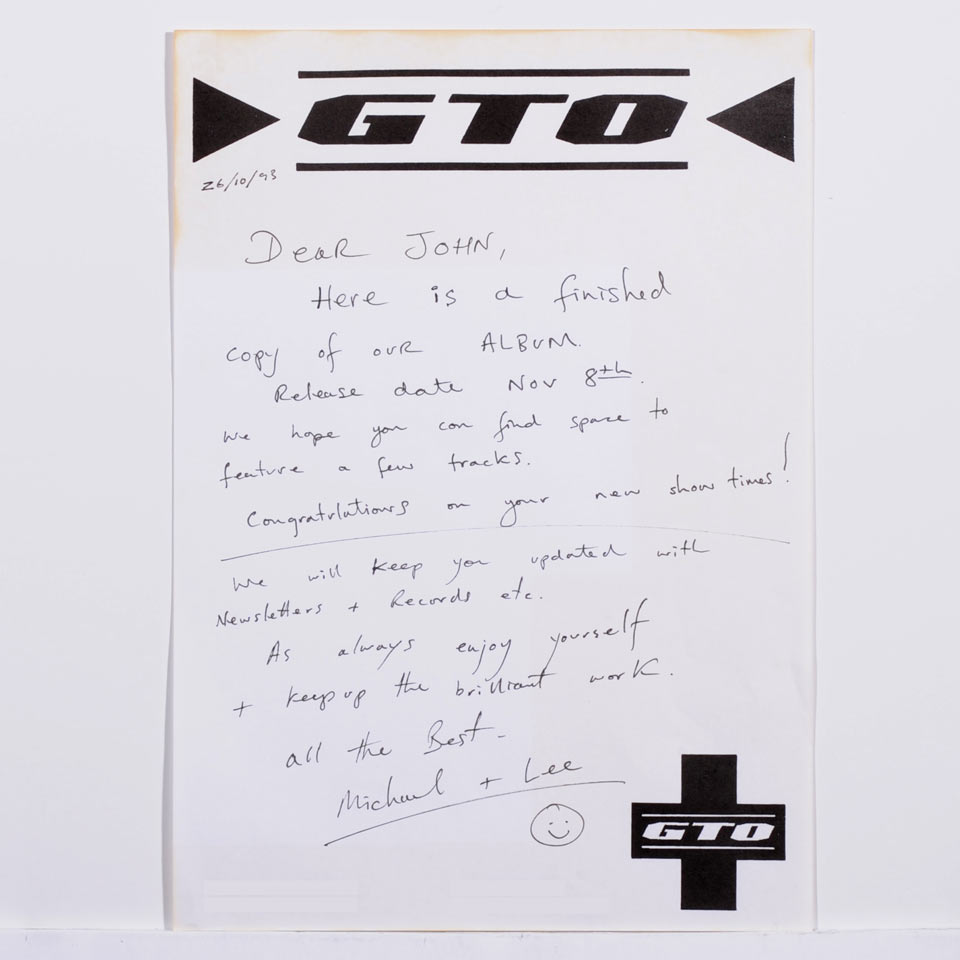 GTO
26/10/93
Dear JOHN,
Here is a finished
copy of our ALBUM.
Release date Nov 8th.
We hope you can find space to
feature a few tracks.
Congratulations on your new show times!
We will keep you updated with
Newsletters + Records etc.
As always enjoy yourself
+ keep up the brilliant work.
all the Best -
Michael + Lee
GTO